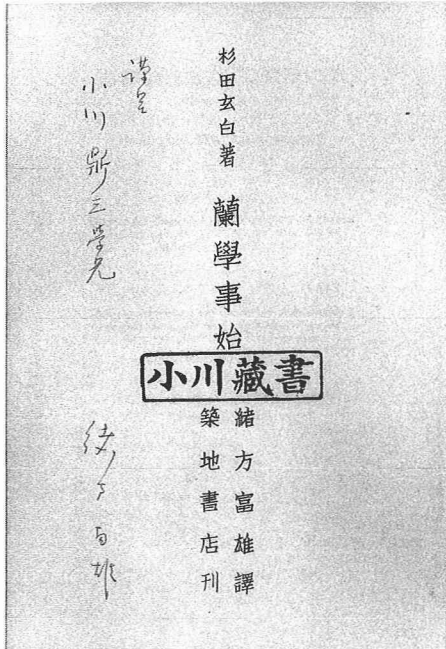 杉田玄白著 蘭學事始
小川藏書
緒方富雄譯
築地書店刊
謹呈
小川鼎三學兄
緒方富雄